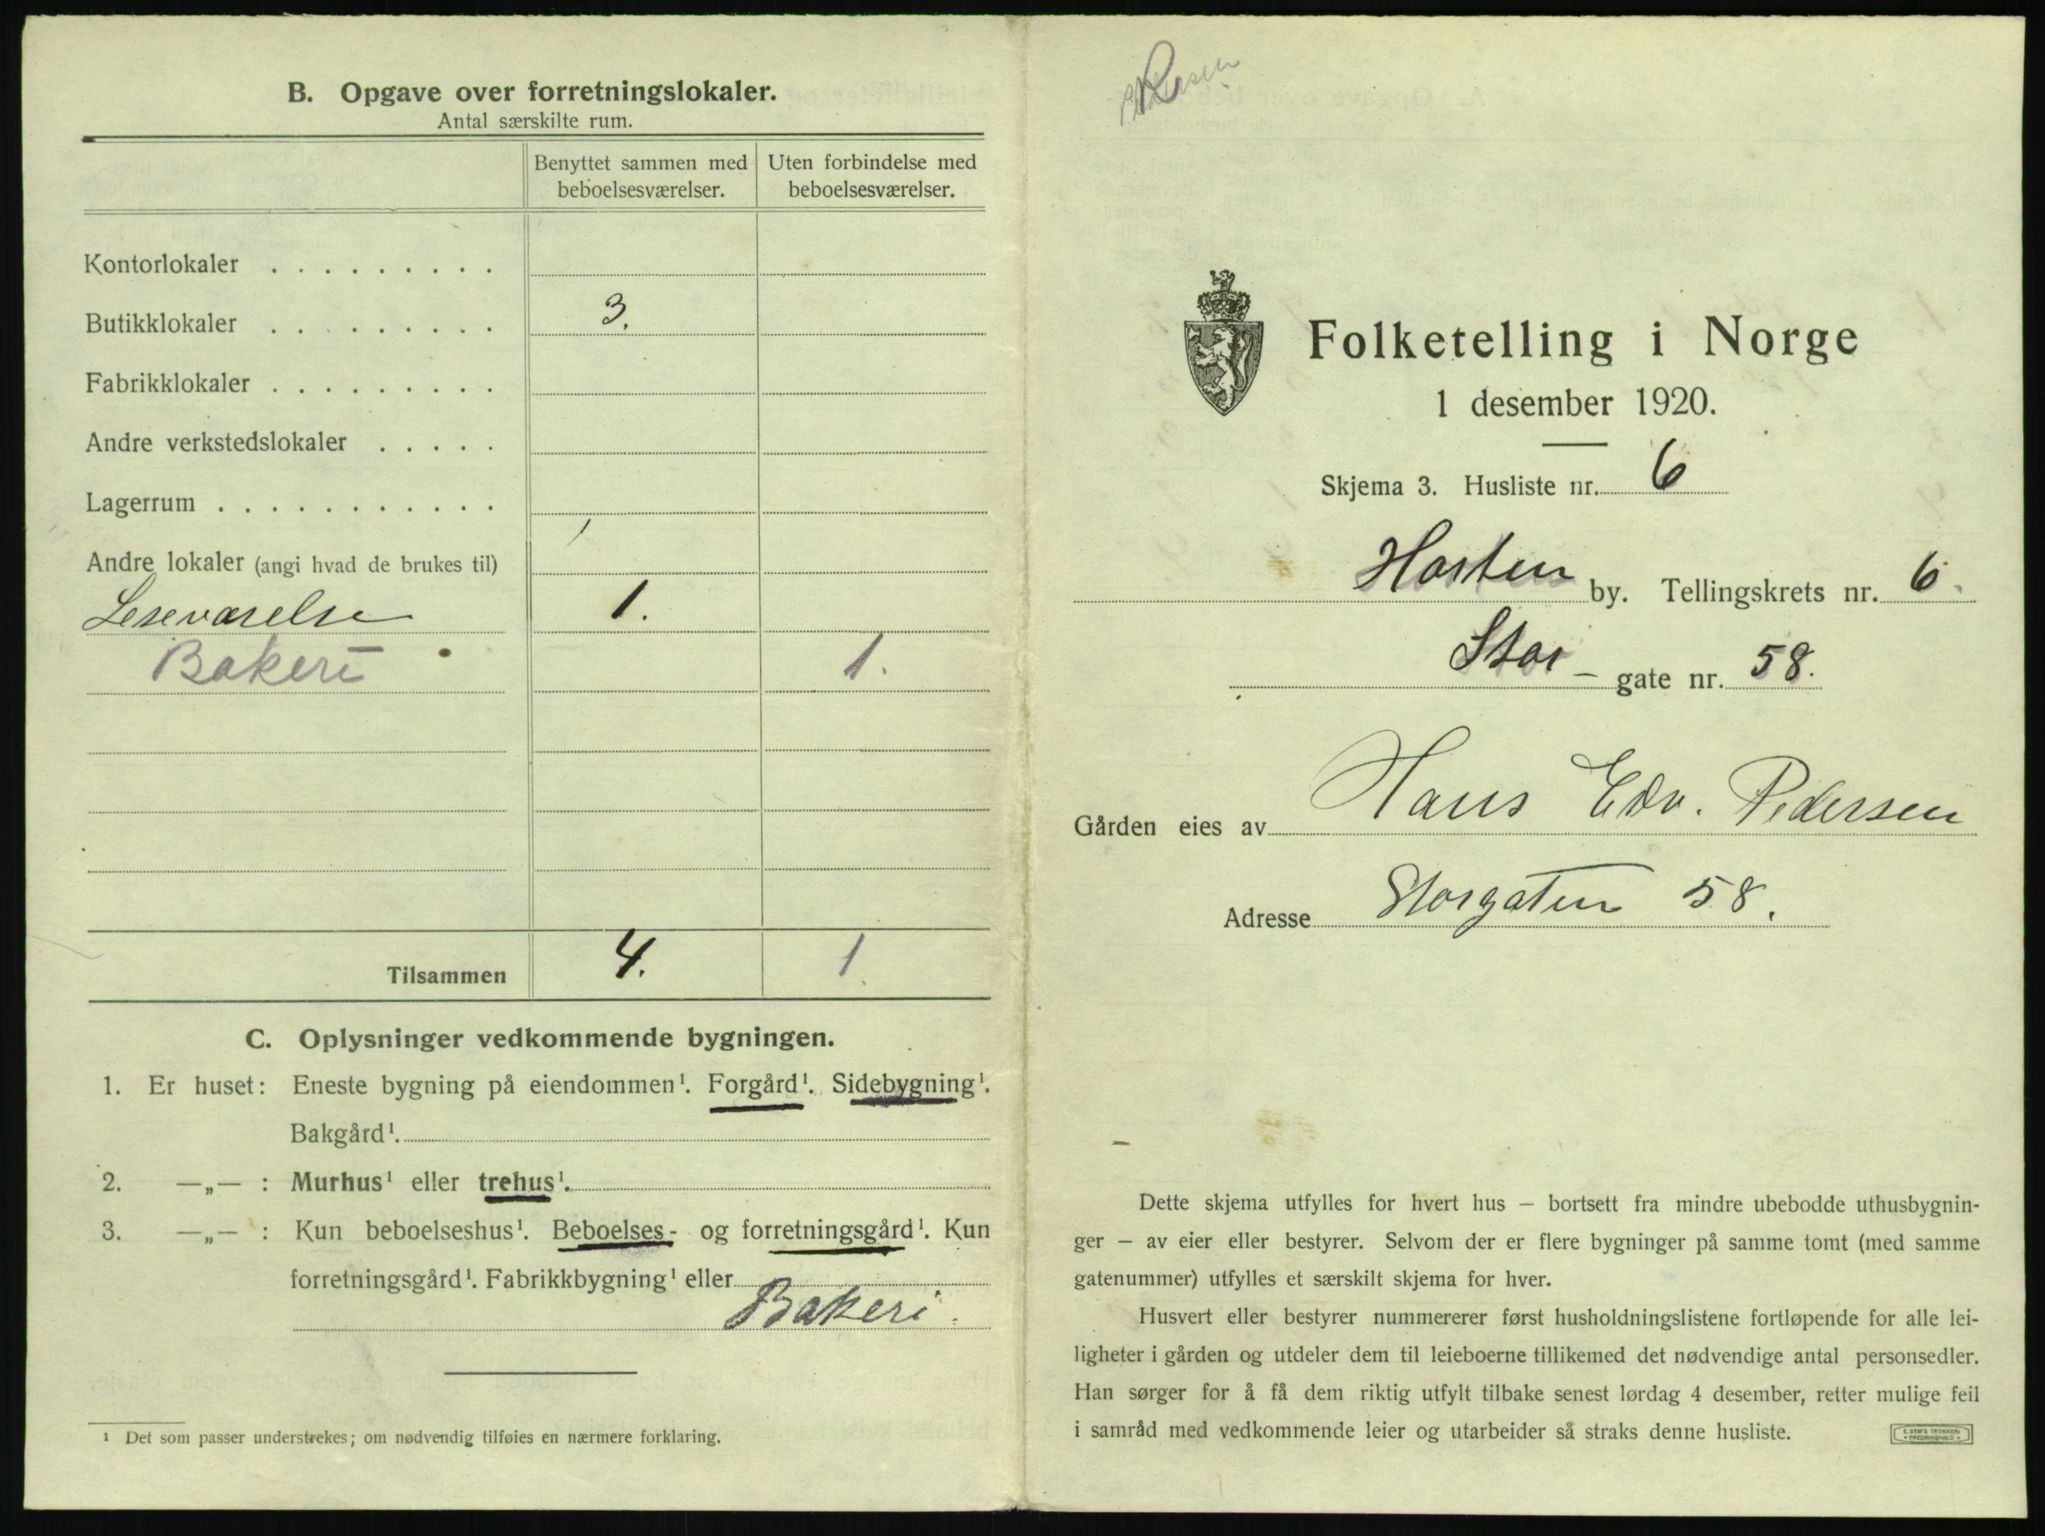 B. Opgave over forretningslokaler.
Antal særskilte rum.
Benyttet sammen med beboelsesværelser.
Uten forbindelse med beboelsesværelser.
Kontorlokaler . . . . . . . . .
Butikklokaler . . . . . . . . . 3.
Fabrikklokaler . . . . . . . . .
Andre verkstedslokaler . . . . .
Lagerrum . . . . . . . . . . .
Andre lokaler (angi hvad de brukes til)
Leseværelse 1.
Bakeri 1.
Tilsammen 4. 1.
C. Oplysninger vedkommende bygningen.
1. Er huset: Eneste bygning på eiendommen¹. Forgård¹. Sidebygning¹.
Bakgård¹.
2. —„— : Murhus¹ eller trehus¹.
3. —„— : Kun beboelseshus¹. Beboelses- og forretningsgård¹. Kun
forretningsgård¹. Fabrikkbygning¹ eller
Bakeri.
¹ Det som passer understrekes; om nødvendig tilføies en nærmere forklaring.
Folketelling i Norge
1 desember 1920.
Skjema 3. Husliste nr. 6
Horten by. Tellingskrets nr. 6.
Stor- gate nr. 58.
Gården eies av Hans Edv. Pedersen
Adresse Storgaten 58.
Dette skjema utfylles for hvert hus – bortsett fra mindre ubebodde uthusbygnin-
ger – av eier eller bestyrer. Selvom der er flere bygninger på samme tomt (med samme
gatenummer) utfylles et særskilt skjema for hver.
Husvert eller bestyrer nummererer først husholdningslistene fortløpende for alle lei-
ligheter i gården og utdeler dem til leieboerne tillikemed det nødvendige antal personsedler.
Han sørger for å få dem riktig utfylt tilbake senest lørdag 4 desember, retter mulige feil
i samråd med vedkommende leier og utarbeider så straks denne husliste.
E. SEM'S TRYKKERI
FREDRIKSHALD